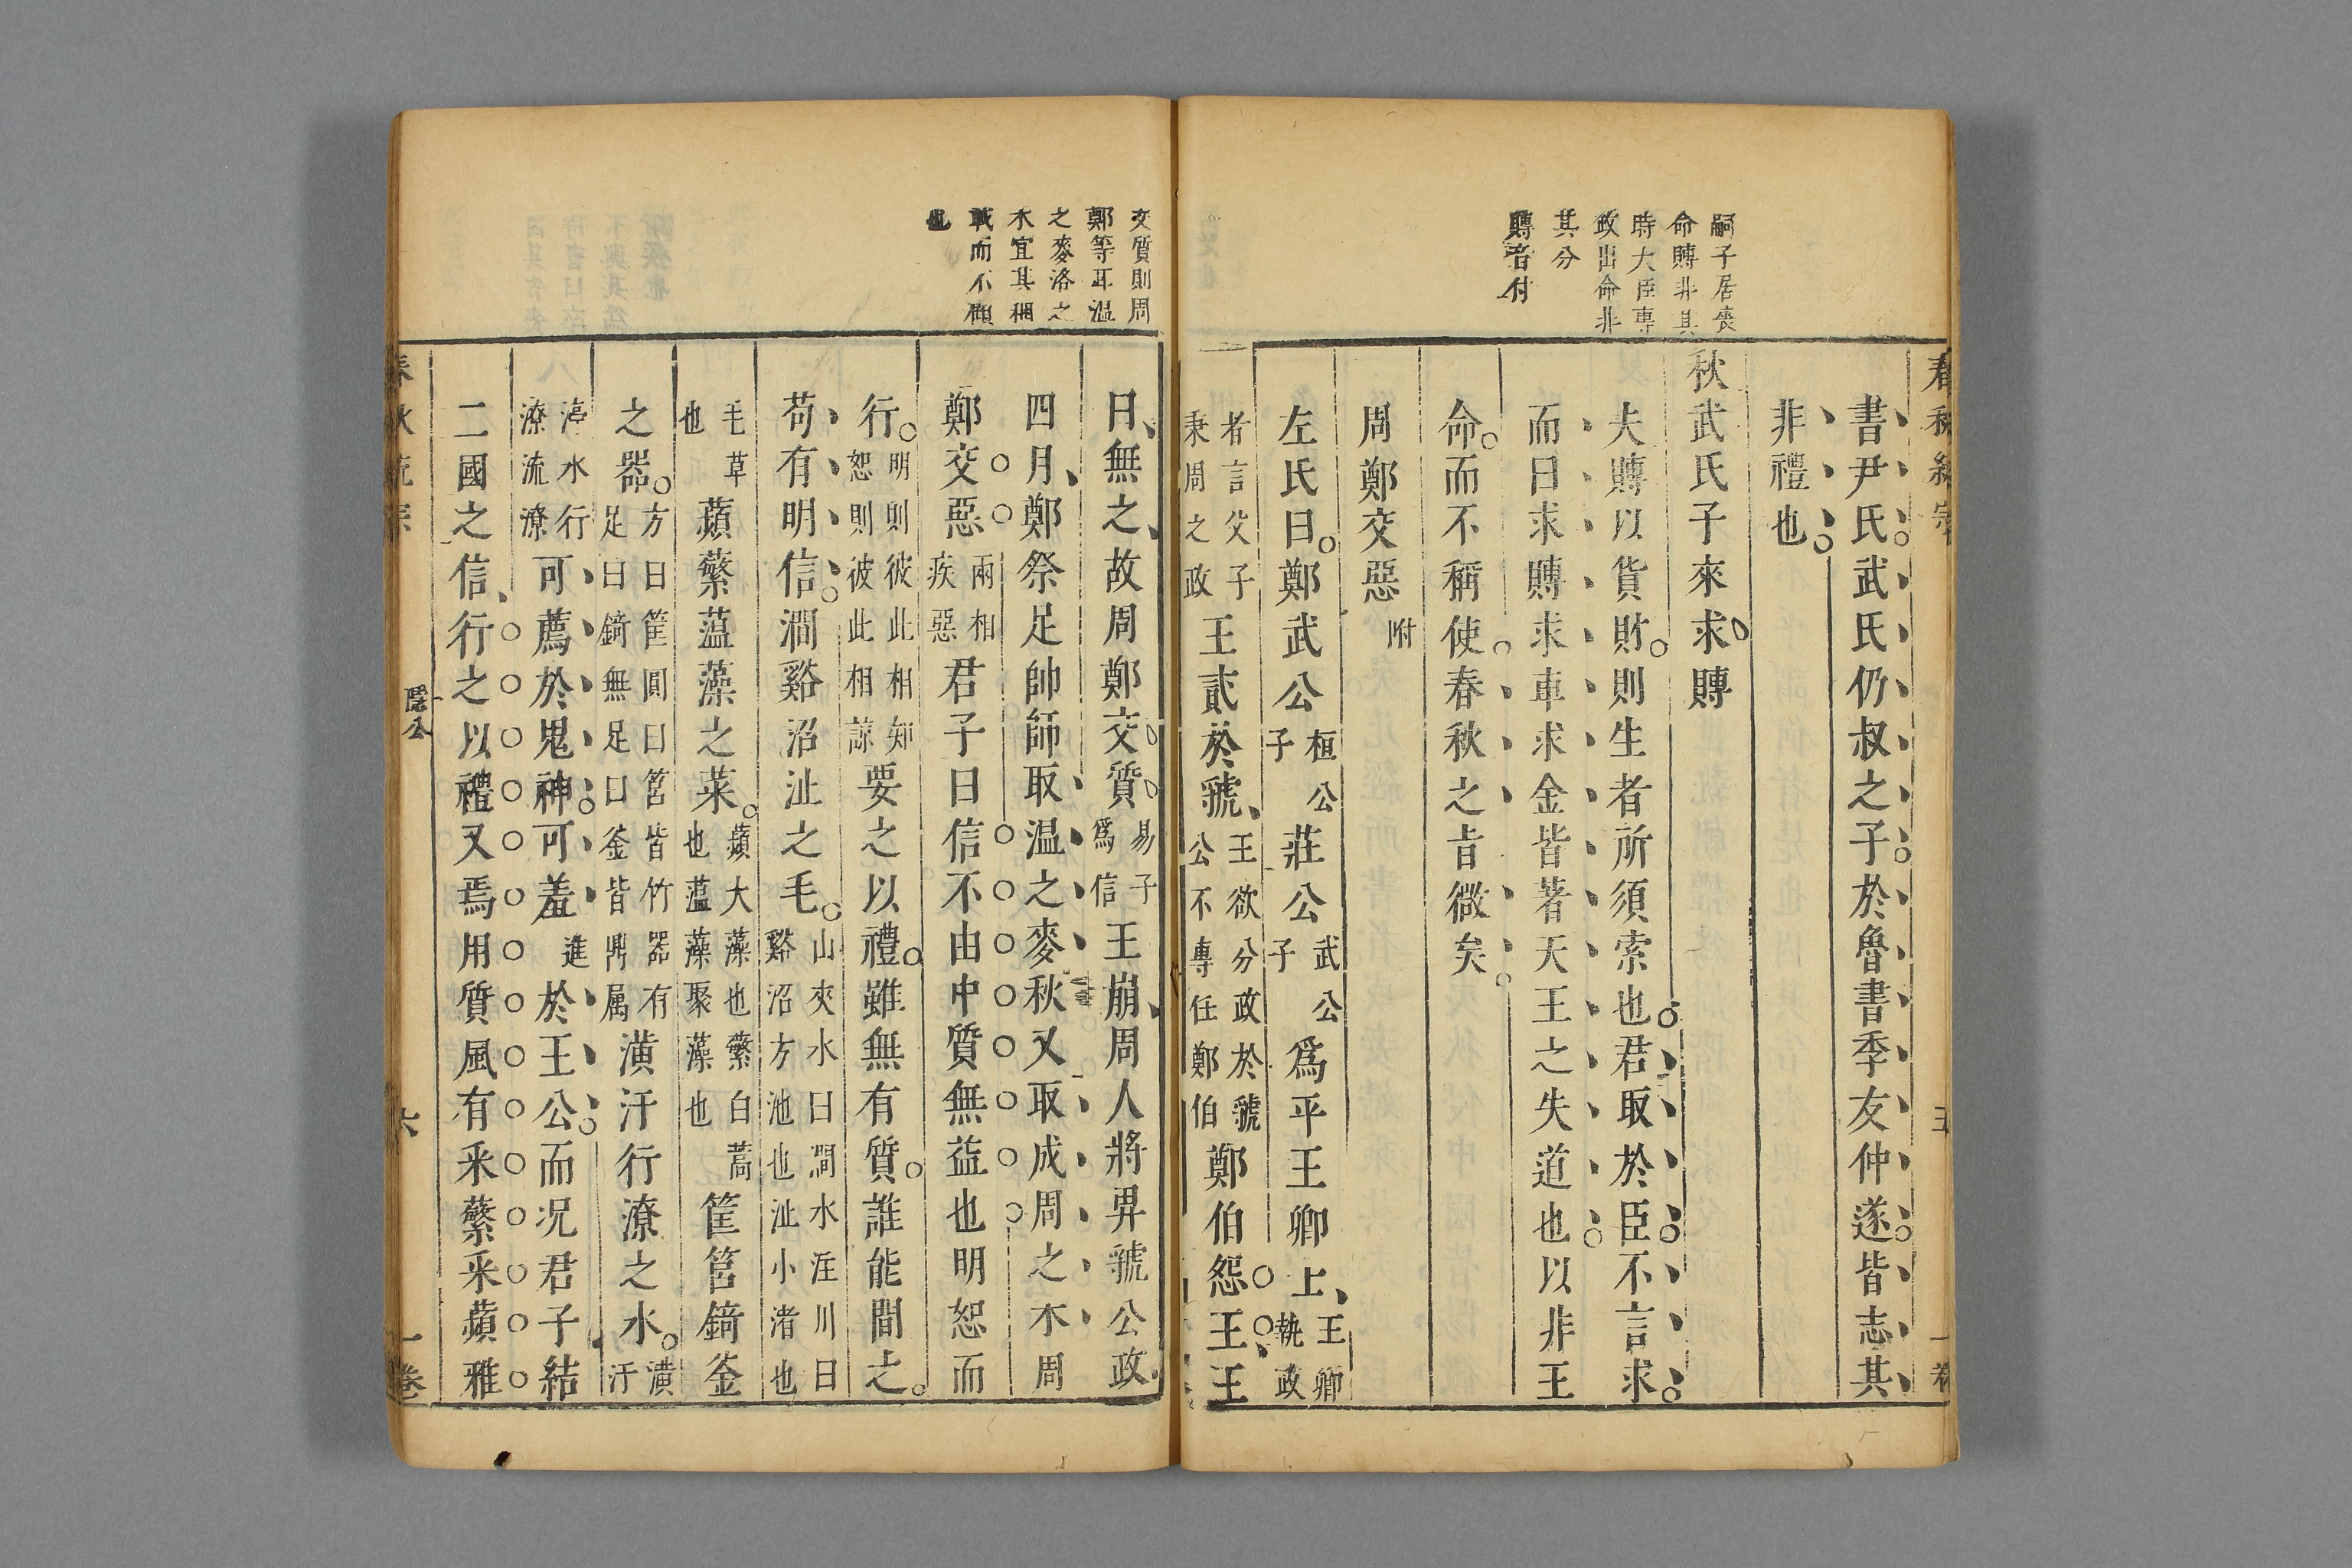 嗣子居喪
命賻非其
時大臣專
政出命非
其分
賻音付
書尹氏武氏仍叔之子於魯書季友仲遂皆志其
非禮也
秋武氏子來求賻
夫賻以貨財則生者所須索也君取於臣不言求
而曰求賻求車求金皆著天王之失道也以非王
命而不稱使春秋之旨微矣
周鄭交惡附
左氏曰鄭武公桓公子莊公武公子爲平王卿士王卿執政
者言父子秉周之政王貳於虢王欲分政於虢公不專任鄭伯鄭伯怨王王
交質則周
鄭等耳溫
之麥洛之
禾宜其稛
載而不顧
也
曰無之故周鄭交質易子爲信王崩周人將畀虢公政
四月鄭祭足帥師取温之麥秋又取成周之禾周
鄭交惡兩相疾惡君子曰信不由中質無益也明恕而
行明則彼此相知恕則彼此相諒要之以禮雖無有質誰能間之
苟有明信澗谿沼沚之毛山夾水曰澗水注川曰谿沼方池也沚小渚也
毛草也蘋蘩薀藻之菜蘋大藻也蘩白蒿也薀藻聚藻也筐筥錡釜
之器方曰筐圓曰筥皆竹器有足曰錡無足曰釜皆鼎属潢汙行潦之水潢汙
渟水行潦流潦可薦於鬼神可羞進於王公而况君子結
二國之信行之以禮又焉用質風有采蘩采蘋雅
隱公
六
一卷